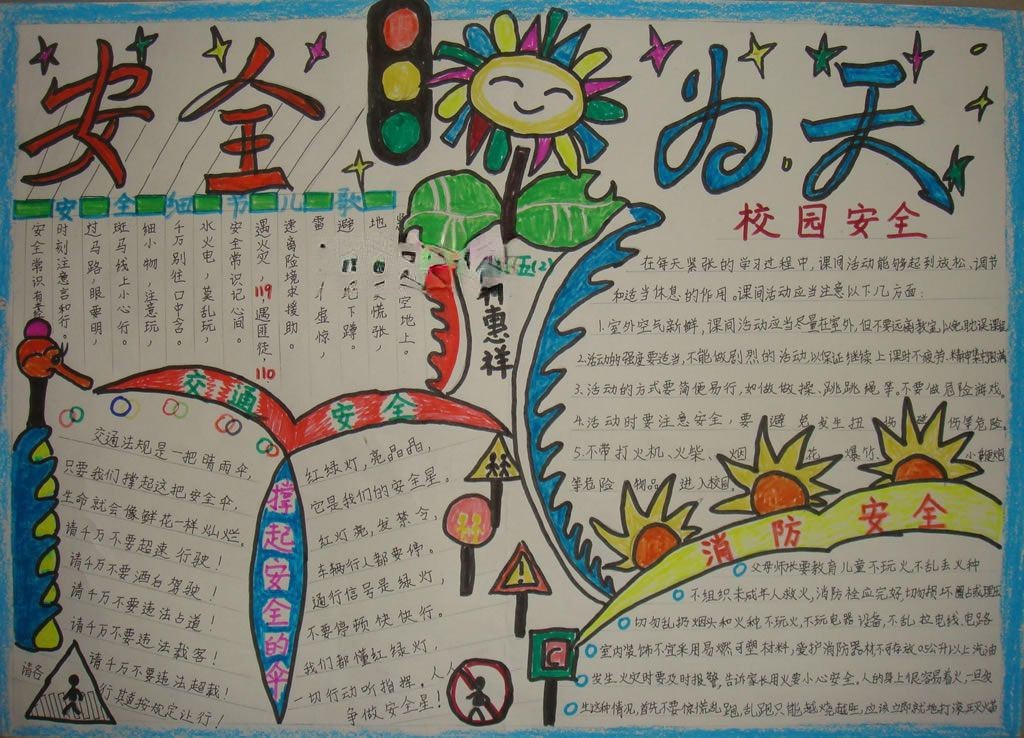 安全为天
安全细节儿歌
安全常识有
时刻注意言和行。
过马路,眼要明,
斑马线上小心行。
细小物,注意玩,
千万别往口中含。
水火电,莫乱玩,
安全常识记心间。
遇火灾,119,遇匪徒,110
速离险境求援助。
雷
虚惊,
避
地下蹲。
地
慌张
空地上。
五(2)
惠祥
交通安全
交通法规是一把晴雨伞,
只要我们撑起这把安全伞,
生命就会像鲜花一样灿烂。
请千万不要超速行驶!
请千万不要酒后驾驶!
请千万不要违法占道!
请千万不要违法载客!
请千万不要违法超载!
请各
行其道按规定让行!
撑起安全的伞
红绿灯,亮晶晶,
它是我们的安全星。
红灯亮,发禁令,
车辆行人都要停。
通行信号是绿灯,
不要停顿快快行。
我们都懂红绿灯,
一切行动听指挥。人人
争做安全星!
校园安全
在每天紧张的学习过程中,课间活动能够起到放松、调节
和适当休息的作用。课间活动应当注意以下几方面:
1.室外空气新鲜,课间活动应当尽量在室外,但不要远离教室,以免耽误课程
2.活动的强度要适当,不能做剧烈的活动,以保证继续上课时不疲劳、精神集中、饱满
3.活动的方式要简便易行,如做做操、跳跳绳等。不要做危险游戏。
4.活动时要注意安全,要避免发生扭伤、碰伤等危险。
5.不带打火机、火柴、烟花、爆竹、小鞭炮
等危险物品进入校园。
消防安全
父母师长要教育儿童不玩火不乱丢火种
不组织未成年人救火,消防栓应完好,切勿损坏圈占或埋压
切勿乱扔烟头和火种不玩火,不玩电器设备,不乱拉电线、电路
室内装饰不宜采用易燃可塑材料,爱护消防器材不可存放0.5公升以上汽油
发生火灾时要及时报警,告诉家长用火要小心安全。人的身上很容易着火,一旦发
生这种情况,首先不要惊慌乱跑,乱跑只能越烧越旺,应该立即就地打滚压灭火焰